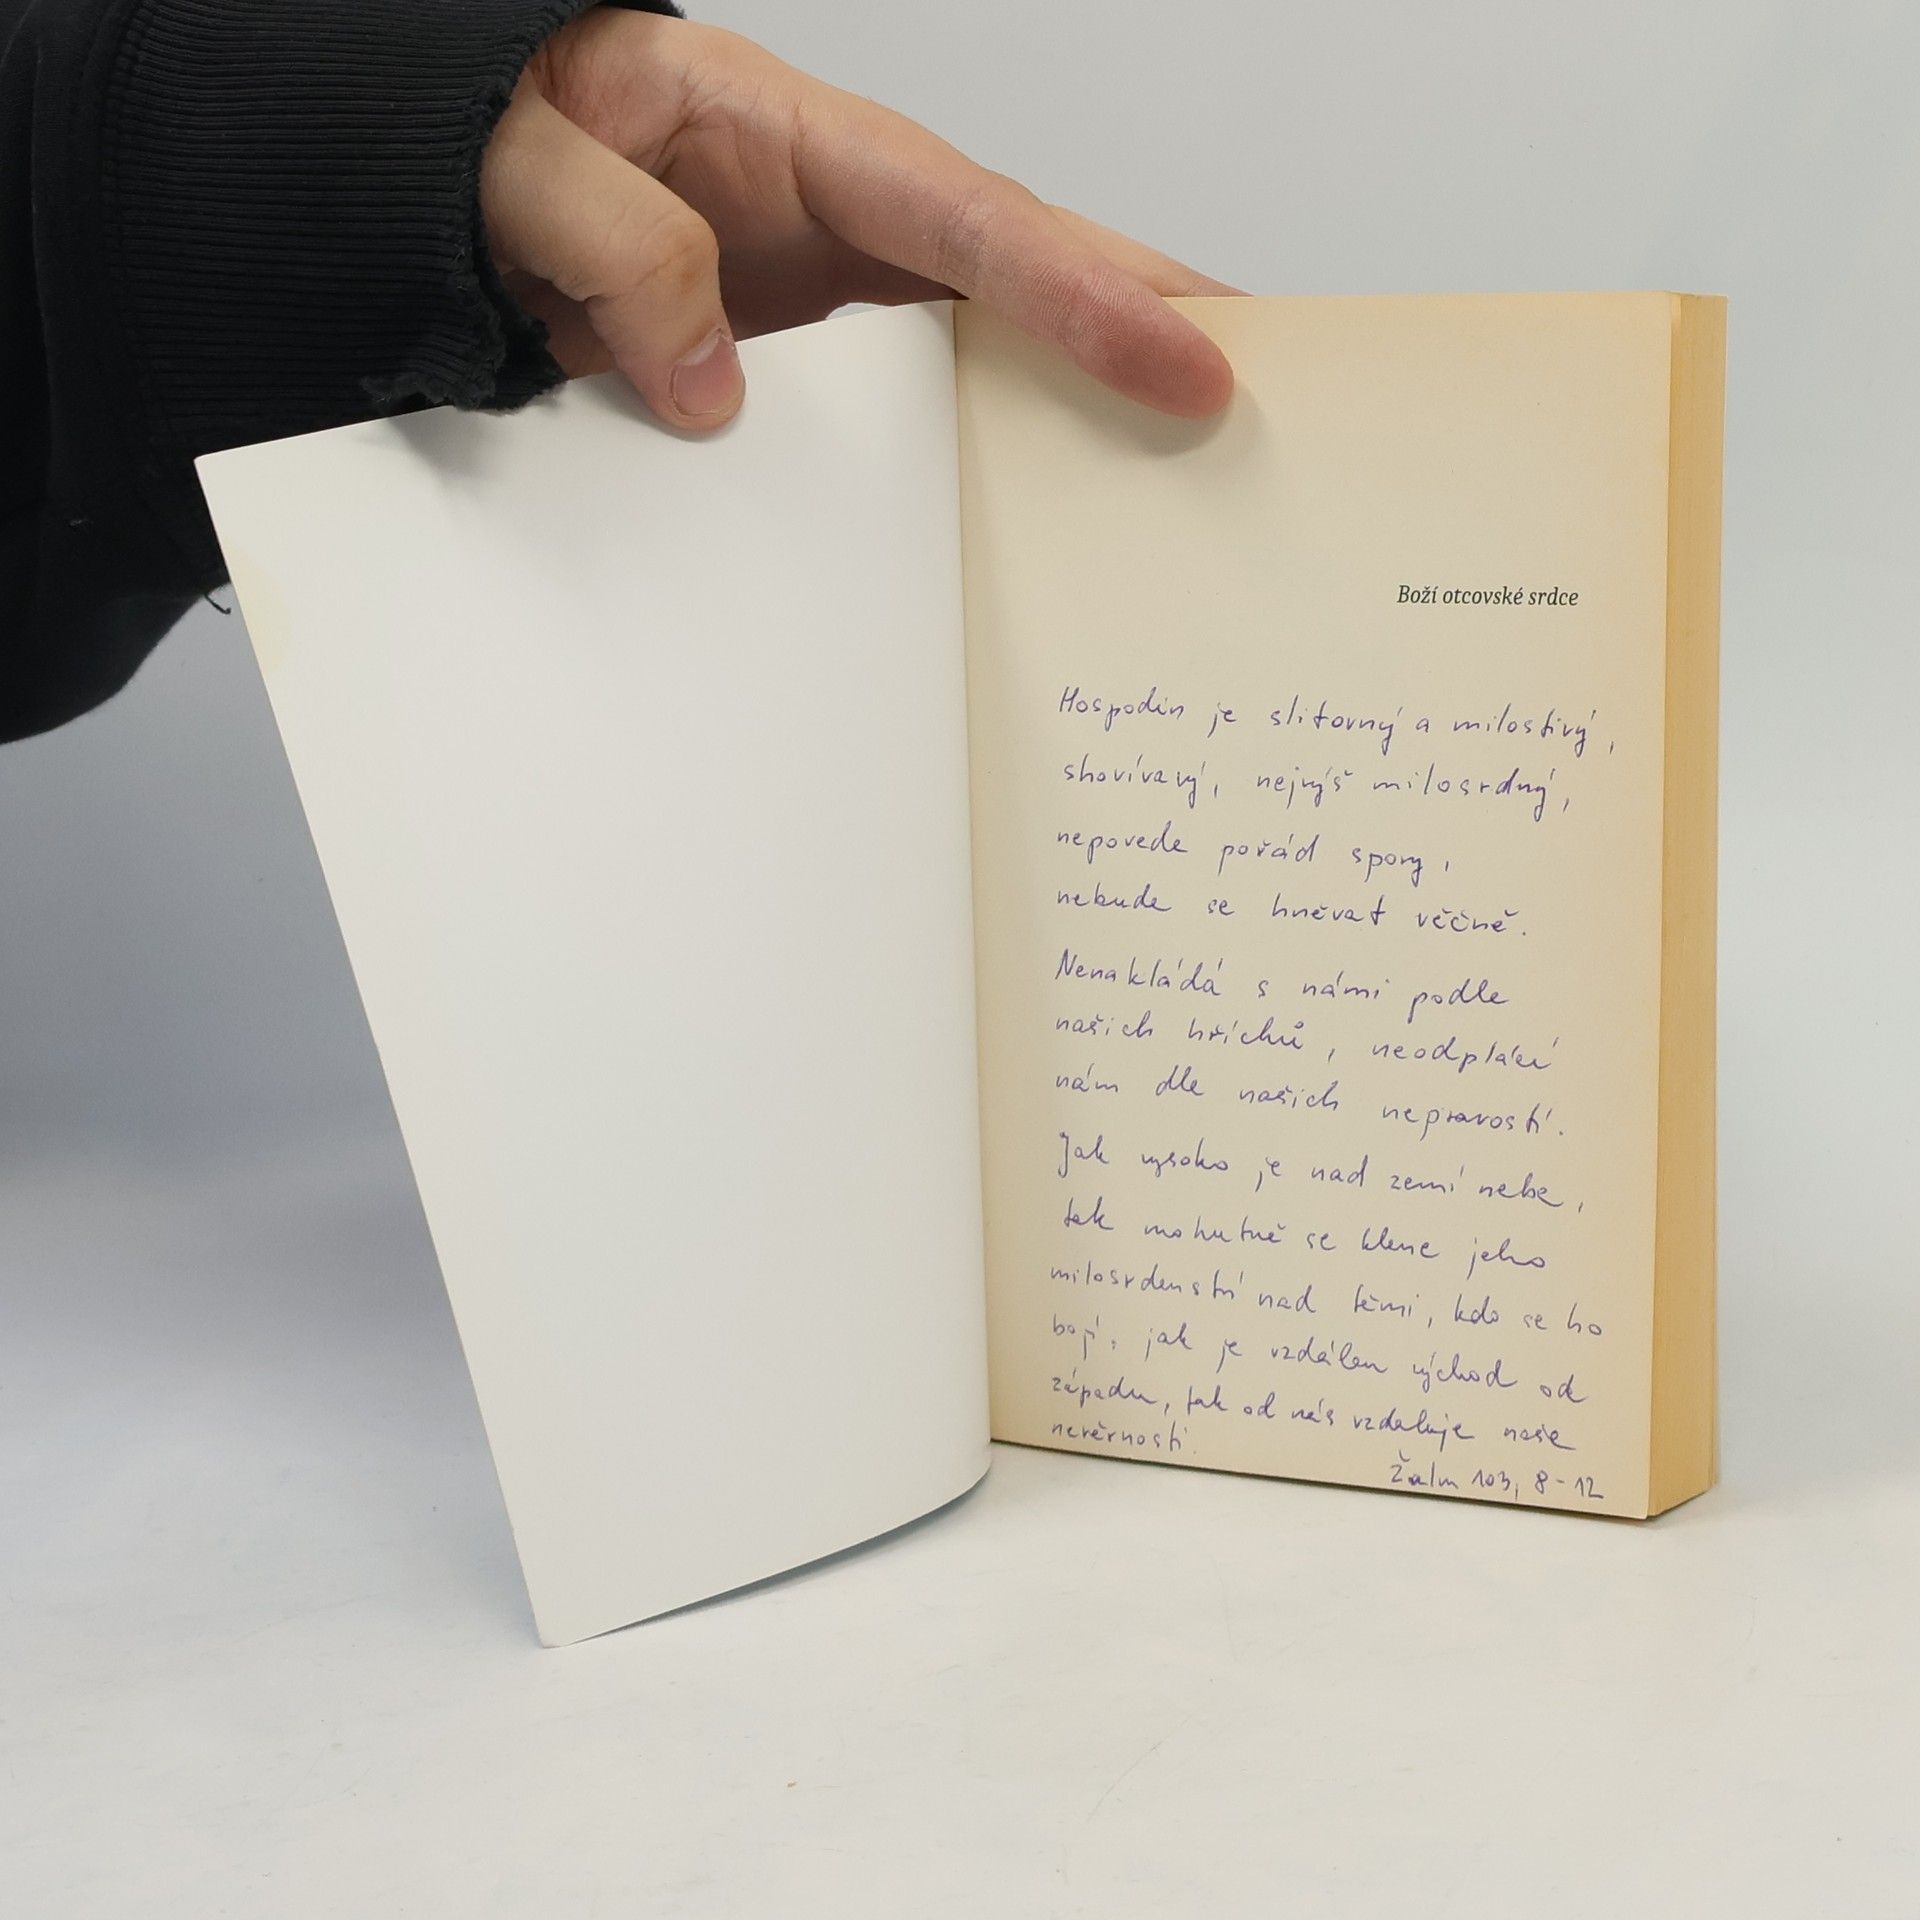 Boží otcovské srdce
Hospodin je slitovný a milostivý,
shovívavý, nejvýš milosrdný,
nepovede pořád spory,
nebude se hněvat věčně.
Nenakládá s námi podle
našich hříchů, neodplácí
nám dle našich nepravostí.
Jak vysoko je nad zemí nebe,
tak mohutně se klene jeho
milosrdenství nad těmi, kdo se ho
bojí, jak je vzdálen východ od
západu, tak od nás vzdaluje naše
nevěrnosti.
Žalm 103, 8-12